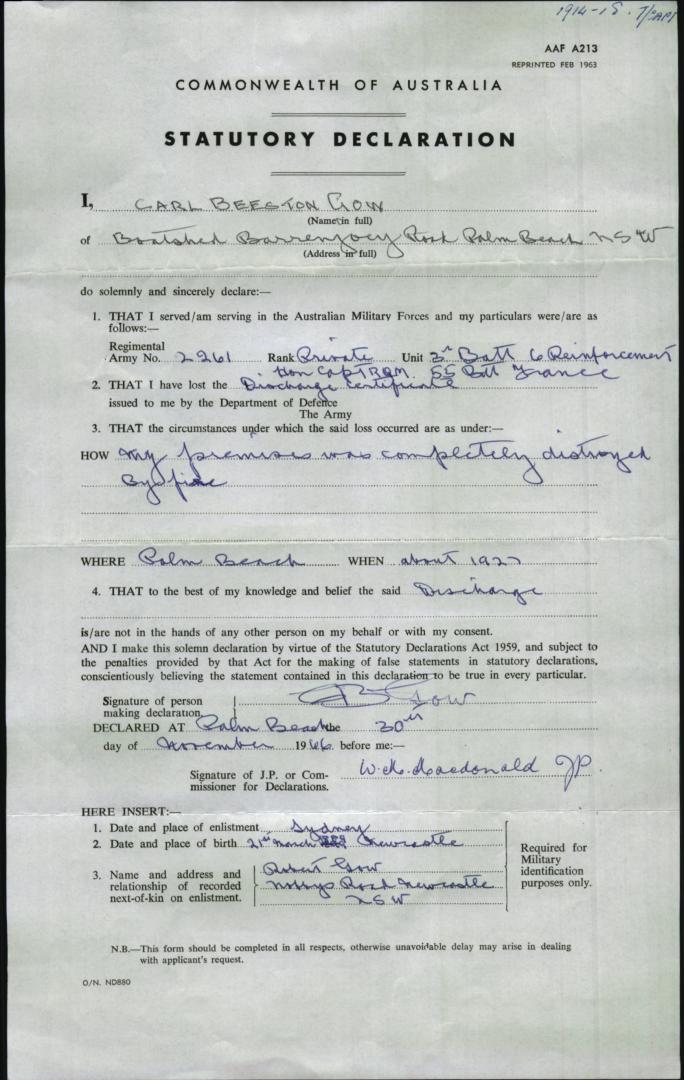 1914-18.
AAF A213
REPRINTED FEB 1963
COMMONWEALTH OF AUSTRALIA
STATUTORY DECLARATION
I, CARL BEESTON GOW
(Name in full)
of Boatshed Barrenjoey Road Palm Beach NSW
(Address in full)
do solemnly and sincerely declare:—
1. THAT I served/am serving in the Australian Military Forces and my particulars were/are as
follows:—
Regimental
Army No. 2261 Rank Private Unit 3rd Batt 6 Reinforcement
Hon Capt & QM. 55 Batt France
2. THAT I have lost the Discharge Certificate
issued to me by the Department of Defence
The Army
3. THAT the circumstances under which the said loss occurred are as under:—
HOW My premises was completely distroyed
By fire
WHERE Palm Beach WHEN about 1927
4. THAT to the best of my knowledge and belief the said Discharge
is/are not in the hands of any other person on my behalf or with my consent.
AND I make this solemn declaration by virtue of the Statutory Declarations Act 1959, and subject to
the penalties provided by that Act for the making of false statements in statutory declarations,
conscientiously believing the statement contained in this declaration to be true in every particular.
Signature of person
making declaration. CB Gow
DECLARED AT Palm Beach the 30th
day of November 1966 before me:—
Signature of J.P. or Com-
missioner for Declarations. Macdonald JP.
HERE INSERT:—
1. Date and place of enlistment Sydney
2. Date and place of birth 21st March Newcastle
3. Name and address and
relationship of recorded
next-of-kin on enlistment.
Robert Gow
Road Newcastle
NSW
Required for
Military
identification
purposes only.
N.B.—This form should be completed in all respects, otherwise unavoidable delay may arise in dealing
with applicant's request.
O/N. ND880